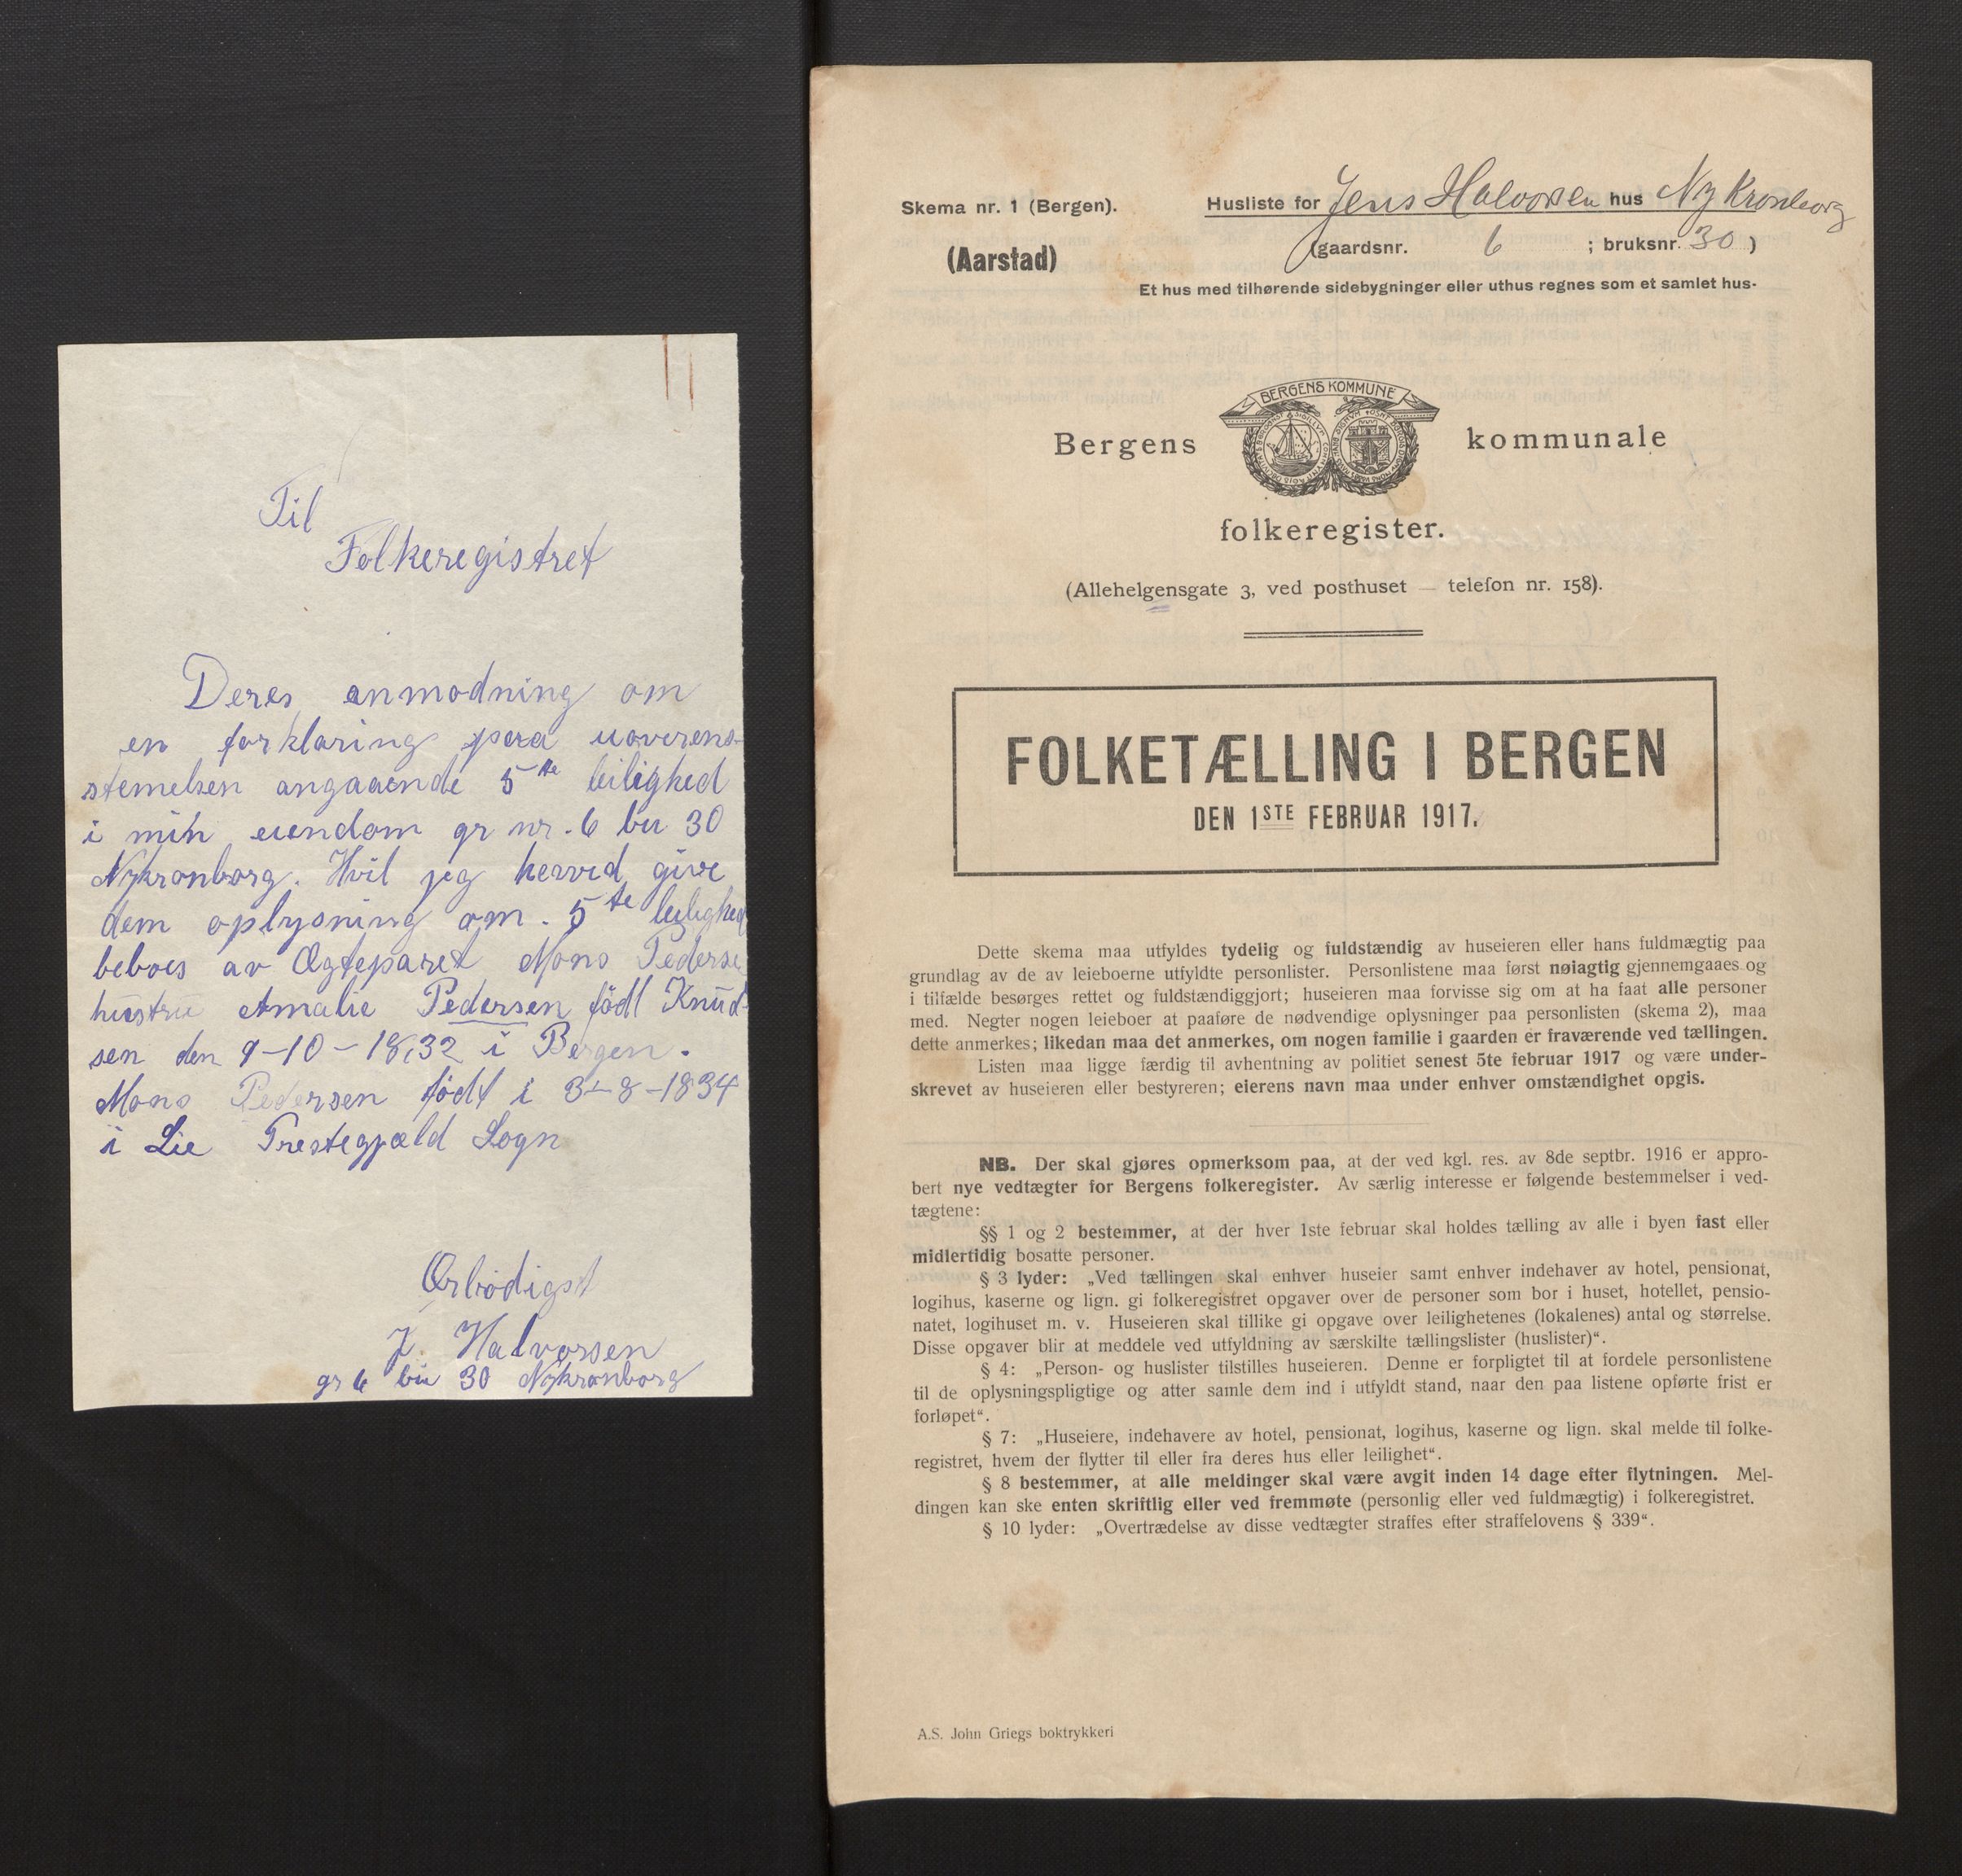 Til
Folkeregistret
Deres anmodning om
en forklaring paa uoverens-
stemelsen angaaende 5te leilighed
i min eiendom gr nr. 6 bu 30
Nykronborg. Hvil jeg herved give
dem oplysning om. 5te leilighed
beboes av Ægteparet Mons Pederse
hustru Amalie Pedersen född Knud-
sen den 9-10-1832 i Bergen.
Mons Pedersen född i 3-8-1834
i Lie Prestegjæld Sogn
Ærbödigst
J. Halvorsen
gr 6 bu 30 Nykronborg
Skema nr. 1 (Bergen).
(Aarstad)
Husliste for Jens Halvorsen hus Ny Kronborg
(gaardsnr. 6 ; bruksnr. 30 )
Et hus med tilhørende sidebygninger eller uthus regnes som et samlet hus-
BERGENS KOMMUNE
Bergens kommunale
folkeregister.
(Allehelgensgate 3, ved posthuset — telefon nr. 158).
FOLKETÆLLING I BERGEN
DEN 1STE FEBRUAR 1917.
Dette skema maa utfyldes tydelig og fuldstændig av huseieren eller hans fuldmægtig paa
grundlag av de av leieboerne utfyldte personlister. Personlistene maa først nøiagtig gjennemgaaes og
i tilfælde besørges rettet og fuldstændiggjort; huseieren maa forvisse sig om at ha faat alle personer
med. Negter nogen leieboer at paaføre de nødvendige oplysninger paa personlisten (skema 2), maa
dette anmerkes; likedan maa det anmerkes, om nogen familie i gaarden er fraværende ved tællingen.
Listen maa ligge færdig til avhentning av politiet senest 5te februar 1917 og være under-
skrevet av huseieren eller bestyreren; eierens navn maa under enhver omstændighet opgis.
NB. Der skal gjøres opmerksom paa, at der ved kgl. res. av 8de septbr. 1916 er appro-
bert nye vedtægter for Bergens folkeregister. Av særlig interesse er følgende bestemmelser i ved-
tægtene:
§§ 1 og 2 bestemmer, at der hver 1ste februar skal holdes tælling av alle i byen fast eller
midlertidig bosatte personer.
§ 3 lyder: „Ved tællingen skal enhver huseier samt enhver indehaver av hotel, pensionat,
logihus, kaserne og lign. gi folkeregistret opgaver over de personer som bor i huset, hotellet, pensio-
natet, logihuset m. v. Huseieren skal tillike gi opgave over leilighetenes (lokalenes) antal og størrelse.
Disse opgaver blir at meddele ved utfyldning av særskilte tællingslister (huslister)“.
§ 4: „Person- og huslister tilstilles huseieren. Denne er forpligtet til at fordele personlistene
til de oplysningspligtige og atter samle dem ind i utfyldt stand, naar den paa listene opførte frist er
forløpet“.
§ 7: „Huseiere, indehavere av hotel, pensionat, logihus, kaserne og lign. skal melde til folke-
registret, hvem der flytter til eller fra deres hus eller leilighet“.
§ 8 bestemmer, at alle meldinger skal være avgit inden 14 dage efter flytningen. Mel-
dingen kan ske enten skriftlig eller ved fremmøte (personlig eller ved fuldmægtig) i folkeregistret.
§ 10 lyder: „Overtrædelse av disse vedtægter straffes efter straffelovens § 339“.
A.S. John Griegs boktrykkeri